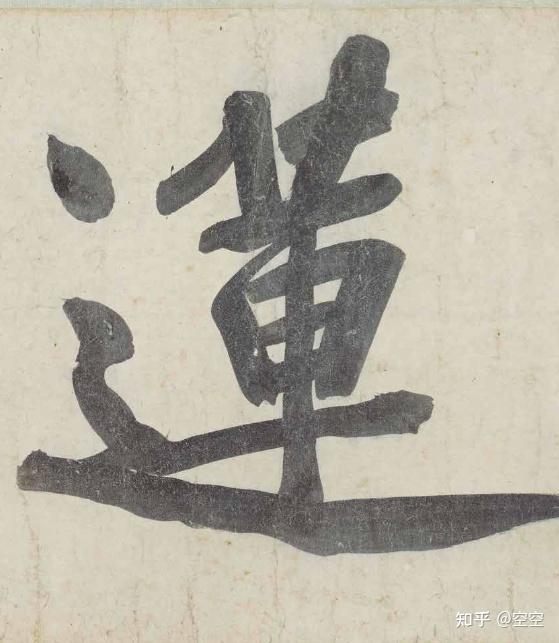 蓮
知乎 @空空